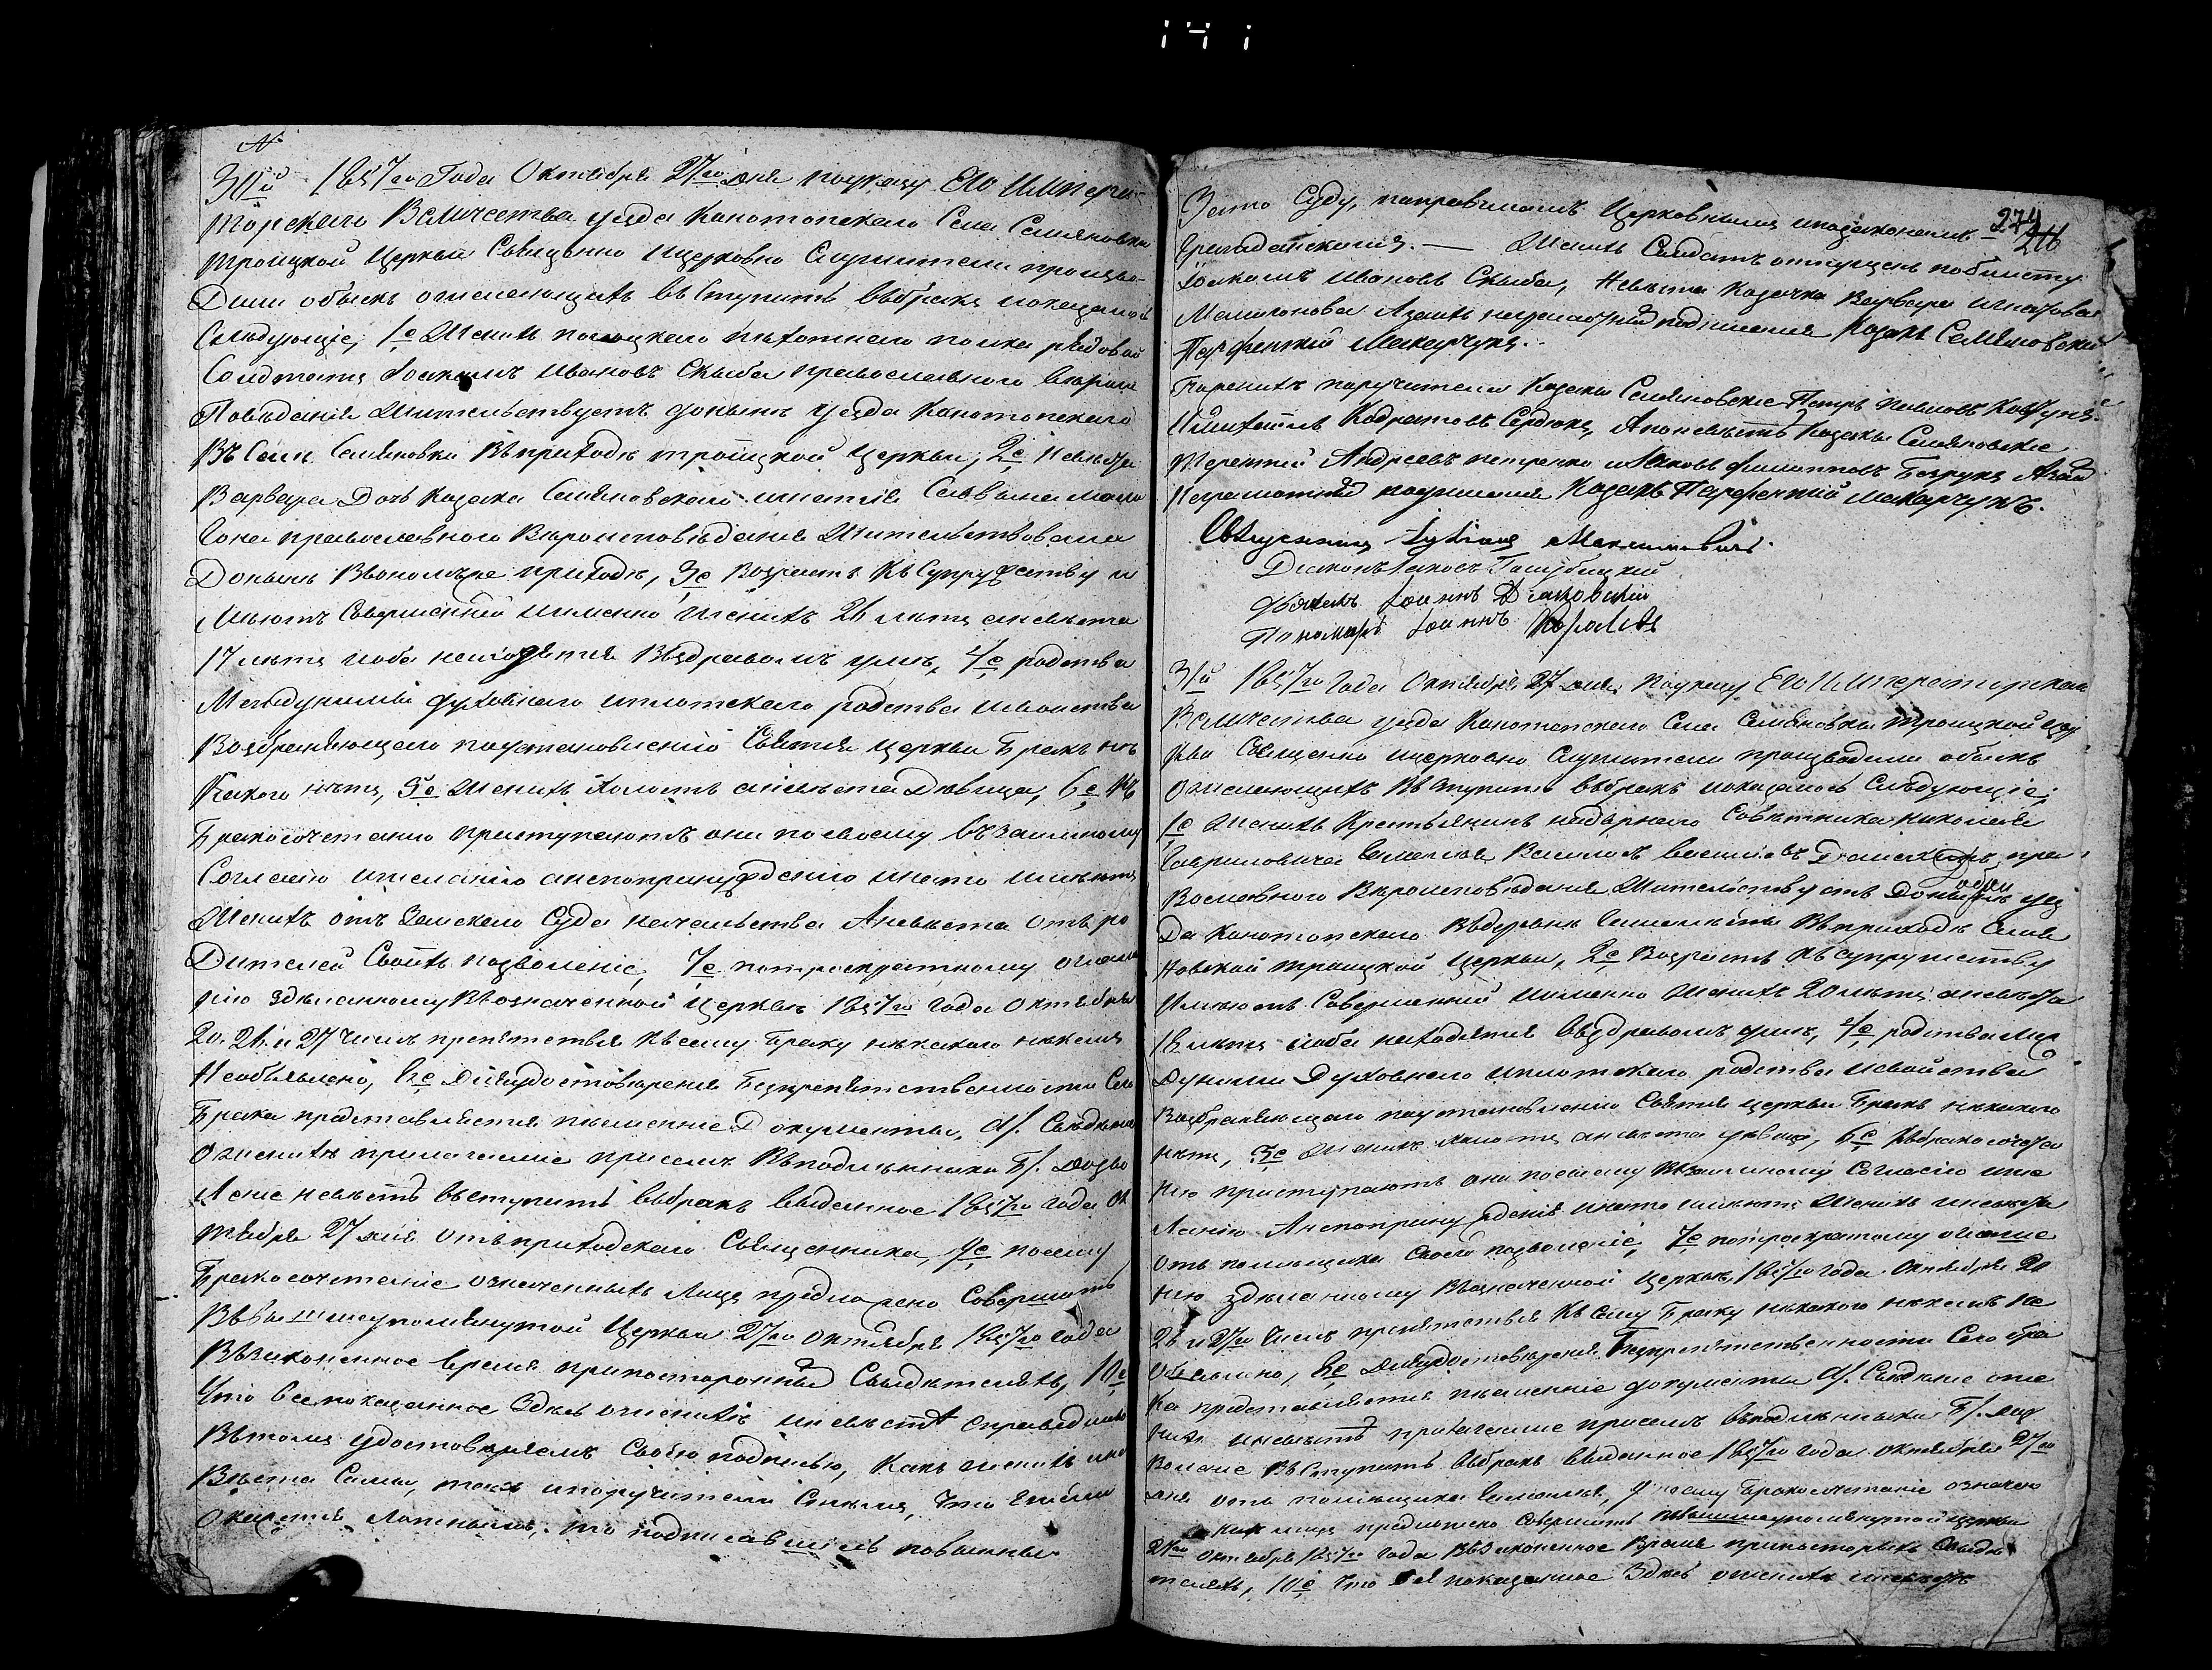 №
30й 1857го Года Октября 27го дня по указу Его Импера-
торскаго Величества уезда Конотопскаго Села Семяновки
троицкой Церкви Священно ицерковно Служители произво-
дили обыскъ ожелающихъ вступить вбракъ иоказалось
Следующіе, 1е Женихъ полоцкаго пехотнаго полка рядовой
Солдатъ Іоакимъ Ивановъ Скыба православнаго вероис
Поведанія Жительствуетъ донынѣ уезда Конотопскаго
Въ Селѣ Семяновки Въ приходѣ троицкой Церкви, 2е Невеста
Варвара Дочь козака Семяновскаго игнатія
православнаго Вероисповеданія Жительствовала
Донынѣ Втомъже приходѣ, 3е Возрастъ Къ Супружеству и
меютъ Совершенній иименно Женихъ 26 летъ аневеста
17 летъ иоба находятся Вздравомъ умѣ, 4е родства
Междуними духовнаго иплотскаго родства исвойства
Возбраняющаго поустановленію Святія церкви Бракъ ни
Какого нетъ, 5е Женихъ холостъ аневеста Девица, 6е Къ
Бракосочетанію приступаютъ они посвоему взаимному
Согласію ижеланію анепопринужденію инато имеютъ
Женихъ отъ Земскаго Суда начальства Аневеста отъ ро
Дителей Своихъ позволеніе, 7е потроекратному оглаше
нію зделанному Вьозначенной церкви 1857го года Октября
20. 26 и 27 Числъ препятствія Ксему Браку никакого никемъ
Необъявлено, 8е Дляудостоверенія Безпрепятственности Сего
Брака представляются писменніе Документы, А/. Сведеніе
Оженихѣ прилагаемое присемъ Вподлинникѣ Б/. дозво
леніе невестѣ вступить вбракъ выданное 1857го года Ок
тября 27 дня отъ приходскаго Священника, 9е посему
Бракосочетаніе означенныхъ лицъ предположено Совершить
Ввышеупомянутой Церкви 27го Октября 1857го года
Взаконенное время припостороннихъ Свидетеляхъ, 10е
Что все показанное Здесь оженихѣ иневестѣ Справедливо
Втомъ удостоверяемъ Своею подписью, Какъ женихъ ине
Веста Сами, такъ ипоручители Стемъ, Что ежели
окажется ложнымъ, то подписавшіесь повинны
274
Зато Суду, поправиламъ Церковнымъ изаконамъ
Гражданскимъ. — Женихъ Солдатъ отпущенъ побилету
Іоакимъ Ивановъ Скыба, Невеста Козачка Варвара Игнатова
Азаихъ неграмотній подписался Козакъ Семяновскій
Парфентій Макарчукъ.
Поженихѣ поручители Козаки Семяновскіе Петръ Павловъ Ковтунъ
Имихаилъ Кодратовъ Сердюкъ, Апоневестѣ Козаки Семяновскіе
Терентій Андреевъ петренко иЯковъ Филиповъ Безрукъ Азаи
Неграмотній подписался Козакъ Парфентій Макарчукъ.
Священникъ Максимовичъ.
Діаконъ Яковъ Голубицкій
Дьячекъ Іоаннъ Діаковскій
Пономарь Іоаннъ
31й 1857го Года Октября 27 дня Поуказу Его Императорскаго
Величества уезда Конотопскаго Села Семяновки троицкой цер
кви Священно ицерковно Служители производили обыскъ
Ожелающихъ Вступить Вбракъ иоказалось Следующіе,
1е Женихъ Крестьянинъ надворнаго Советника николая
Гавриловича Василій пра
Вославного Вероисповеданія Жительствуетъ Донынѣ уез
Да Конотопскаго Вдеревнѣ Вприходѣ Семя
новской троицкой Церкви, 2е Возрастъ Ксупружеству
Имеютъ Совершенній иименно Женихъ 20 летъ аневеста
18 летъ иоба находятся Вздравомъ умѣ, 4е родства меж
Дуними Духовнаго иплотскаго родства исвойства
Возбраняющаго поустановленію Святія церкви Бракъ никакого
нетъ, 5е Женихъ холостъ аневеста девица, 6е Кбракосочета
нію приступаютъ они посвоему Взаимному Согласію иже
ланію Анепопринужденію инато имеютъ Женихъ иневеста
отъ помещика Своего позволеніе, 7е потроекратному оглаше
нію зделанному Вьозначенной Церкви 1857го года Октября 20
26 и 27го Числъ препятствія Ксему Браку никакого никемъ не
Объявлено, 8е Дляудостоверенія Безпрепятственности Сего бра
ка представляются писменніе документы А/. Сведеніе оже
нихѣ иневестѣ прилагаемое присемъ вподлинникѣ Б/. доз
воленіе Вступить Вбракъ выданное 1857го года октября 27го
дня отъ помещика, 9 посему Бракосочетаніе означен
ныхъ лицъ предположено Совершить ввышеупомянутой церкви
27го октября 1857го года Взаконенное Время припостороннихъ Свиде
теляхъ, 10е Что Всё показанное Здесь оженихѣ иневестѣ